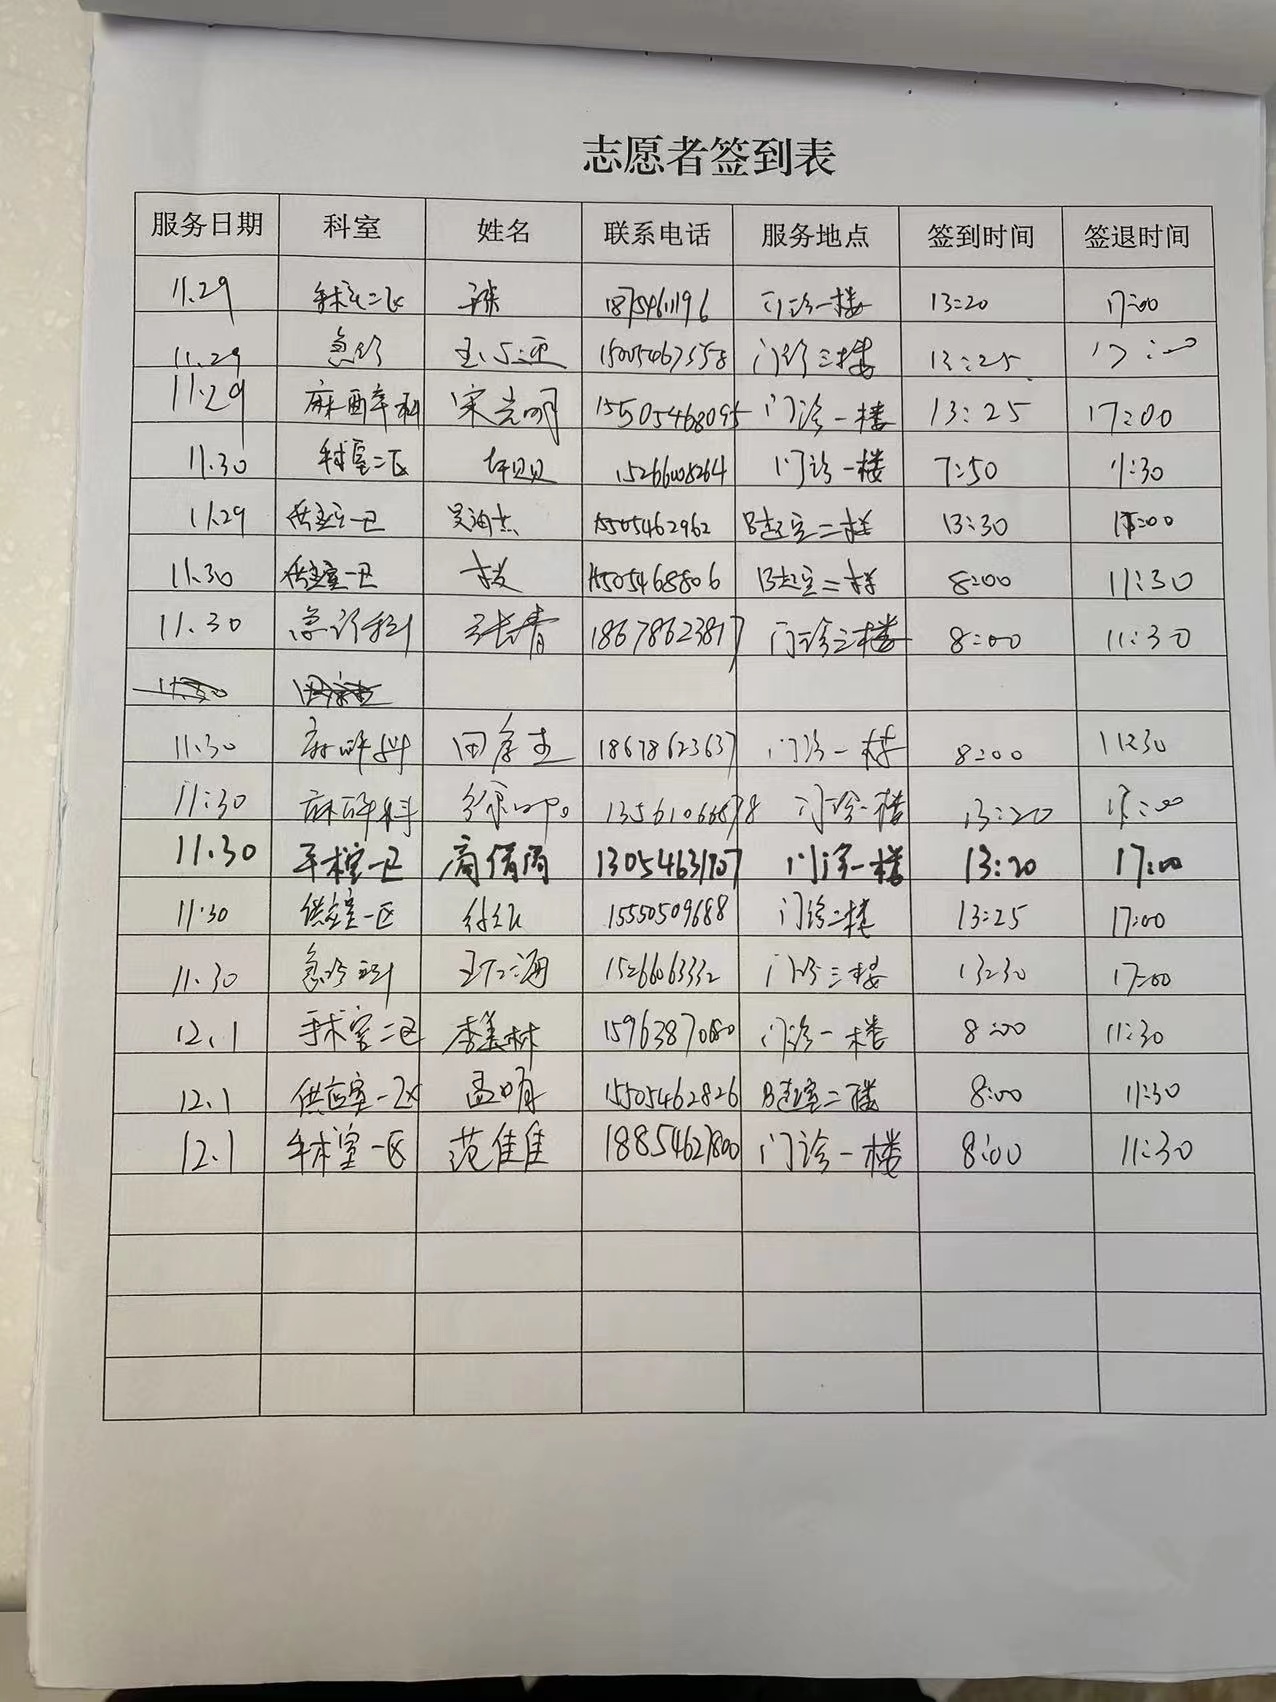 志愿者签到表
服务日期 科室 姓名 联系电话 服务地点 签到时间 签退时间
11.29 手术室二区 18754611196 门诊一楼 13:20 17:00
11.29 急诊 15005467558 门诊三楼 13:25 17:00
11.29 麻醉科 宋光明 15505468095 门诊一楼 13:25 17:00
11.30 手术室二区 15266008264 门诊一楼 7:50 11:30
11.29 供应室一区 15505462962 二楼 13:30 17:00
11.30 供应室一区 15505468806 二楼 8:00 11:30
11.30 急诊科 张长青 18678623817 门诊三楼 8:00 11:30
11.30 麻醉科 18678623637 门诊一楼 8:00 11:30
11:30 麻醉科 13561066878 门诊一楼 13:20 17:00
11.30 手术室一区 商倩倩 13054631707 门诊一楼 13:20 17:00
11.30 供应室一区 15550509688 门诊二楼 13:25 17:00
11.30 急诊科 王仁海 15266063332 门诊三楼 13:30 17:00
12.1 手术室二区 李美林 15963870080 门诊一楼 8:00 11:30
12.1 供应室一区 孟娟 15505462826 二楼 8:00 11:30
12.1 手术室一区 范佳佳 18854627800 门诊一楼 8:00 11:30